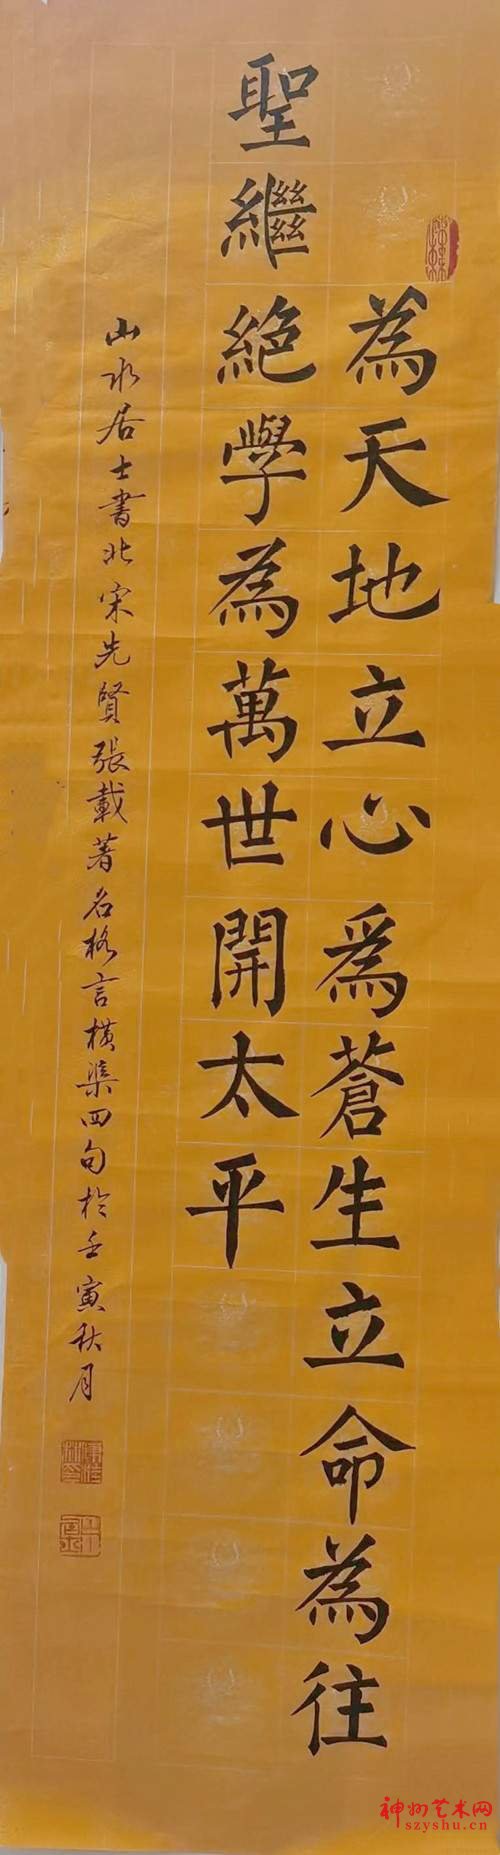 為天地立心為蒼生立命為往
聖繼絕學為萬世開太平
山水居士書北宋先賢張載著名格言橫渠四句於壬寅秋月
神州艺术网
szyshu.cn